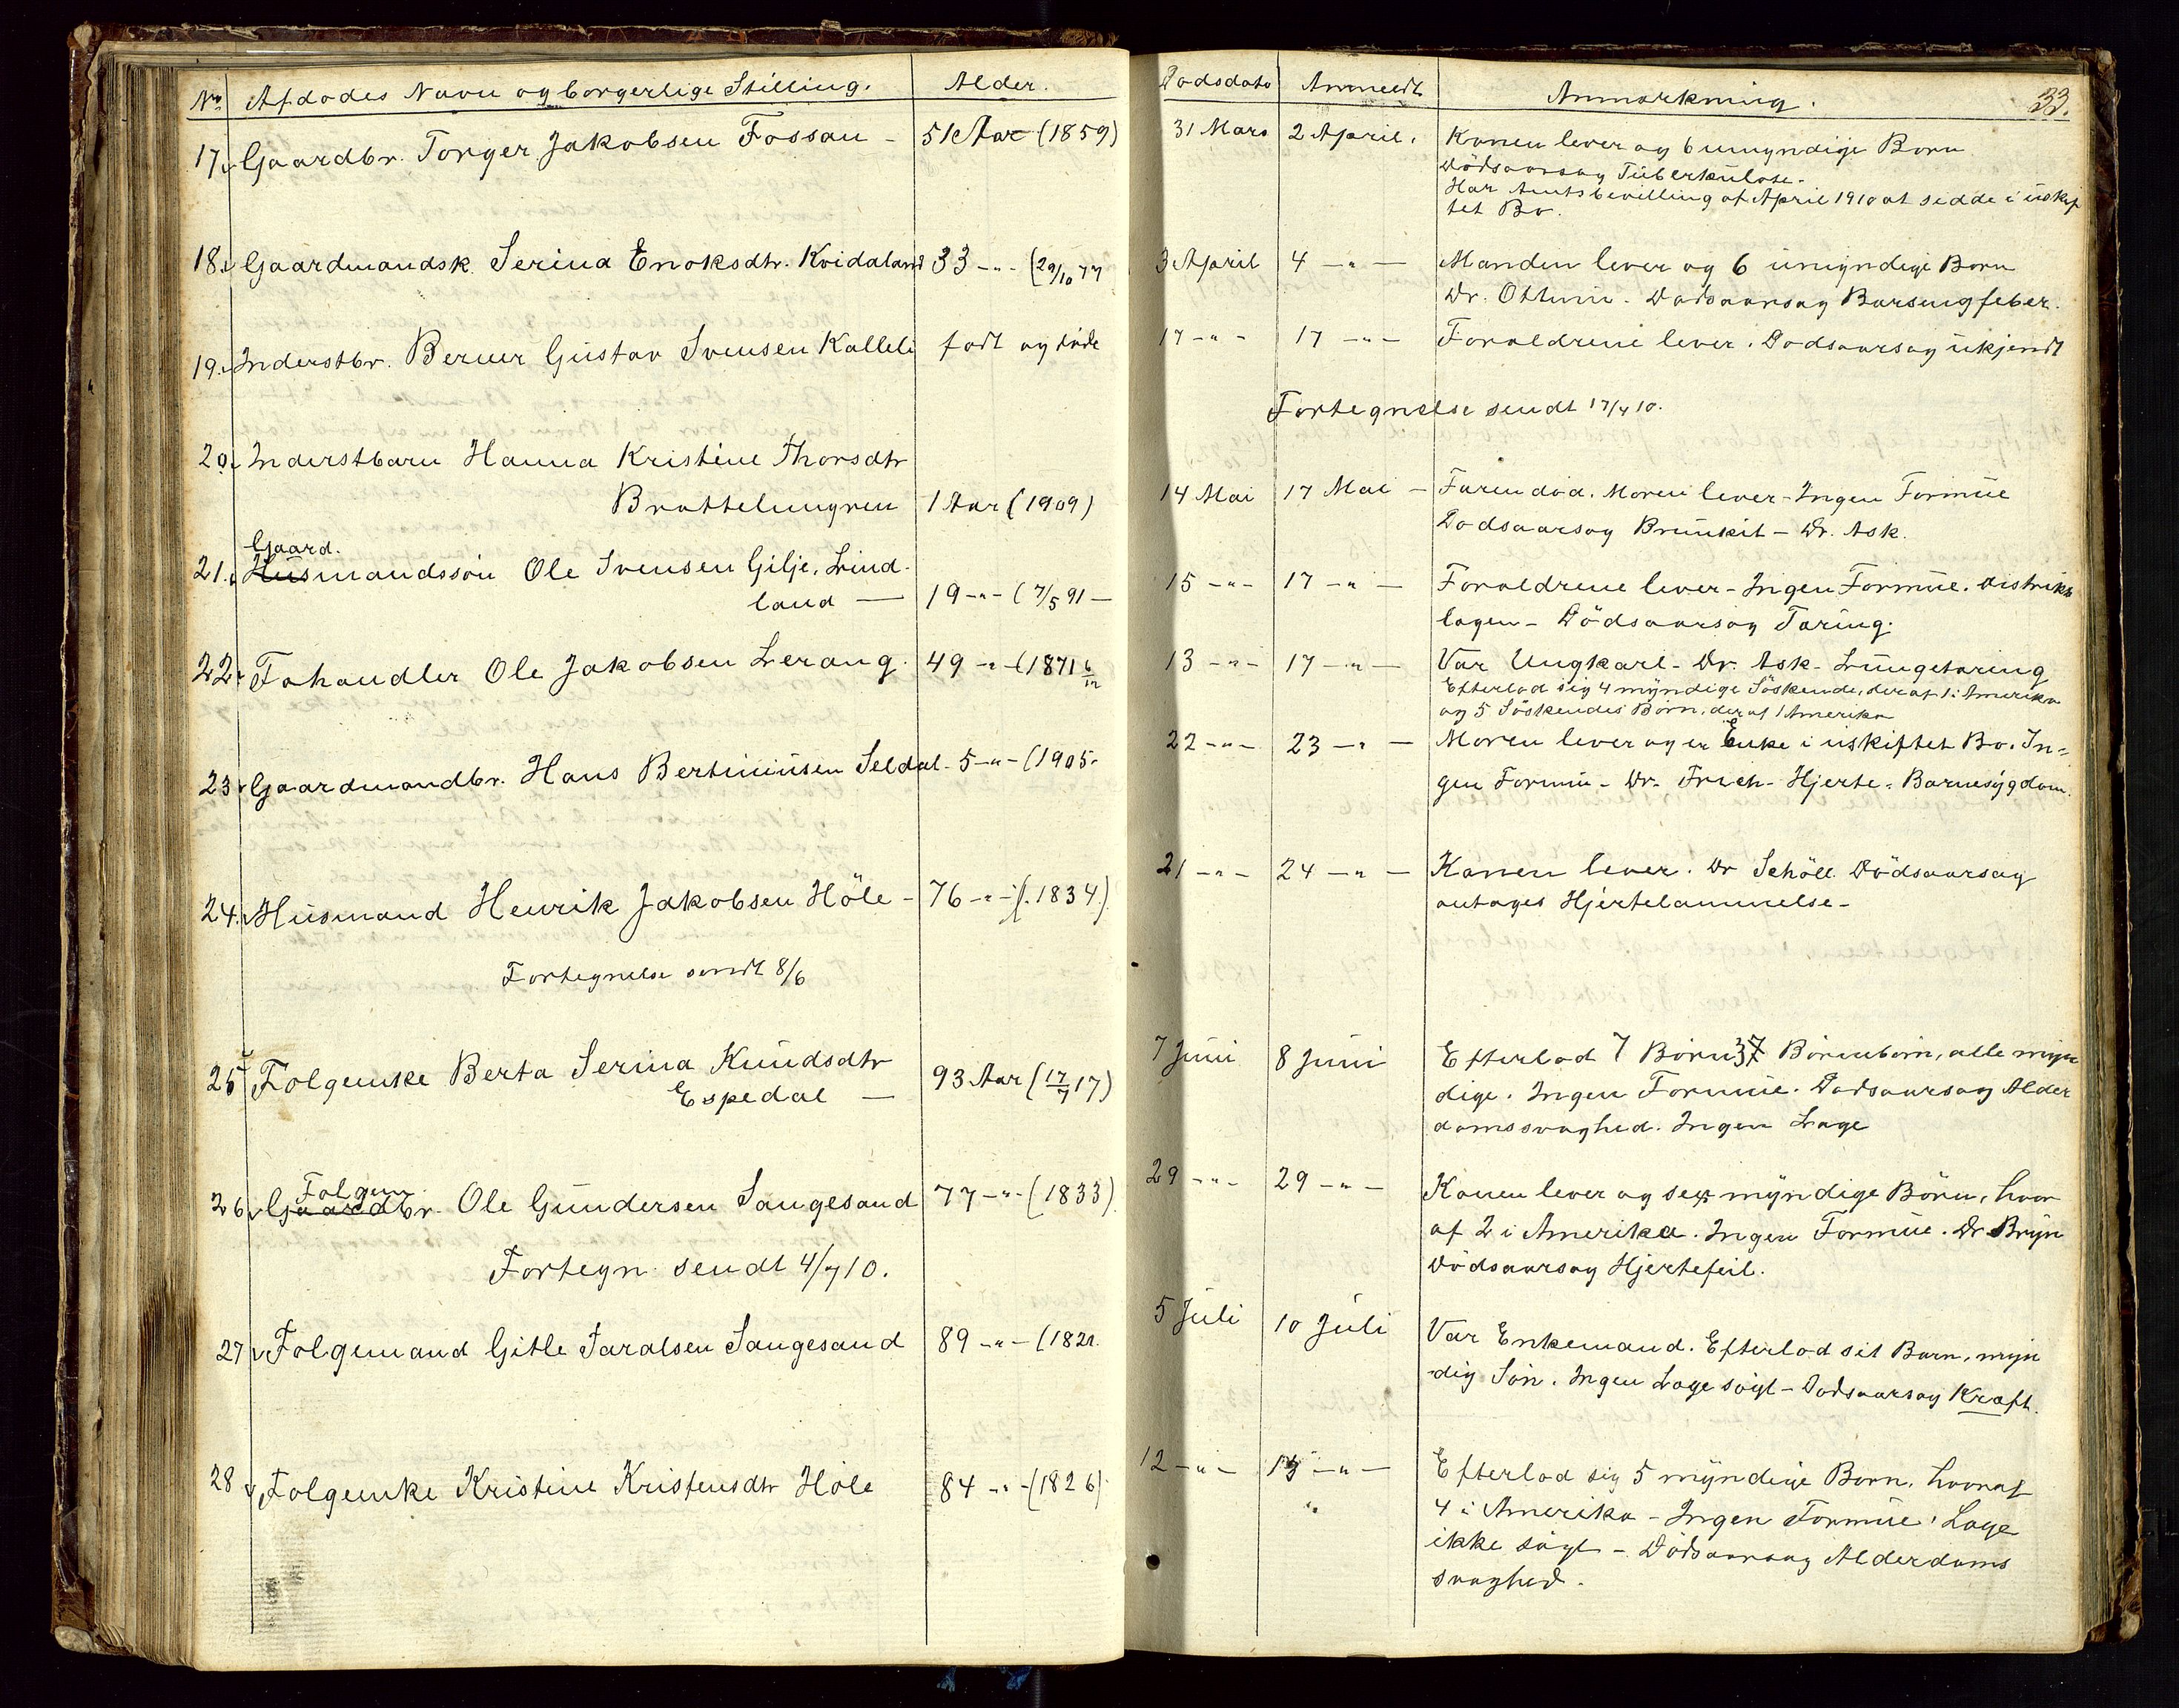 No. Afdødes Navn og borgerlige Stilling. Alder. Dødsdato Anmeldt Anmærkning. 33.
17. Gaardbr. Torger Jakobsen Fossan - 51 Aar (1859) 31 Mars 2 April. Konen lever og 6 umyndige Børn
Dödsaarsag Tuberkulose.
Har Amtsbevilling af April 1910 at sidde i uskif
tet Bo.
18. Gaardmandsk. Serina Enoksdtr. Kvidaland 33 -"- (29/10 77 3 April 4 -"- Manden lever og 6 umyndige Børn
Dr. Dødsaarsag Barsengfeber.
19. Inderstbr. Berner Gustav Svensen Kalleli født og døde 17 -"- 17 -"- Forældrene lever. Dødsaarsag ukjendt
Fortegnelse sendt 17/4 10.
20. Inderstbarn Hanna Kristine Thorsdtr
Brattelungren 1 Aar (1909) 14 Mai 17 Mai - Faren død. Moren lever - Ingen Formue
Dødsaarsag Brunkit - Dr. Ask.
Gaard.
21. Husmandssön Ole Svensen Gilje, Lind-
land - 19 -"- (7/5 91 - 15 -"- 17 -"- Forældrene lever - Ingen Formue. Distrikts
lægen - Dödsaarsag Tæring.
22. Føhandler Ole Jakobsen Lerang. 49 -"- (1871 6/12 13 -"- 17 -"- Var Ungkarl - Dr. Ask - Lungetæring
Efterlod sig 4 myndige Söskende, deraf 1 i Amerika
og 5 Söskendes Börn, deraf 1 Amerika
23. Gaardmandbr. Hans Bertinius­en Seldal - 5 -"- (1905. 22 -"- 23 -"- Moren lever og er Enke i uskiftet Bo. In-
gen Formue - Dr. Frich - Hjerte - Barnesygdom.
24. Husmand Henrik Jakobsen Höle - 76 -"- (1834.) 21 -"- 24 -"- Konen lever. Dr Schöll. Dödsaarsag
antages Hjertelammelse -
Fortegnelse sendt 8/6
25 Folgeenke Berta Serina Knudsdtr
Espedal - 93 Aar (17/7 17) 7 Juni 8 Juni Efterlod 7 Börn 37 Börneborn, alle myn
dige. Ingen Formue. Dødsaarsag Alder
domssvaghed. Ingen Læge
Folgem.
26. Gaardbr. Ole Gundersen Sangesand 77 -"- (1833). 29 -"- 29 -"- Konen lever og sex myndige Börn, hvor
af 2 i Amerika. Ingen Formue. Dr Bryn
Dödsaarsag Hjertefeil.
Fortegn. sendt 4/7 10.
27 Folgemand Gitle Taralsen Sangesand 89 -"- (1821. 5 Juli 10 Juli Var Enkemand. Efterlod sit Barn, myn
dig Sön. Ingen Læge sögt - Dødsaarsag Kræft.
28 Folgeenke Kristine Kristensdtr Höle 84 -"- (1826) 12 -"- -"- Efterlod sig 5 myndige Børn, hvoraf
4 i Amerika - Ingen Formue. Læge
ikke sögt - Dödsaarsag Alderdoms
svaghed.